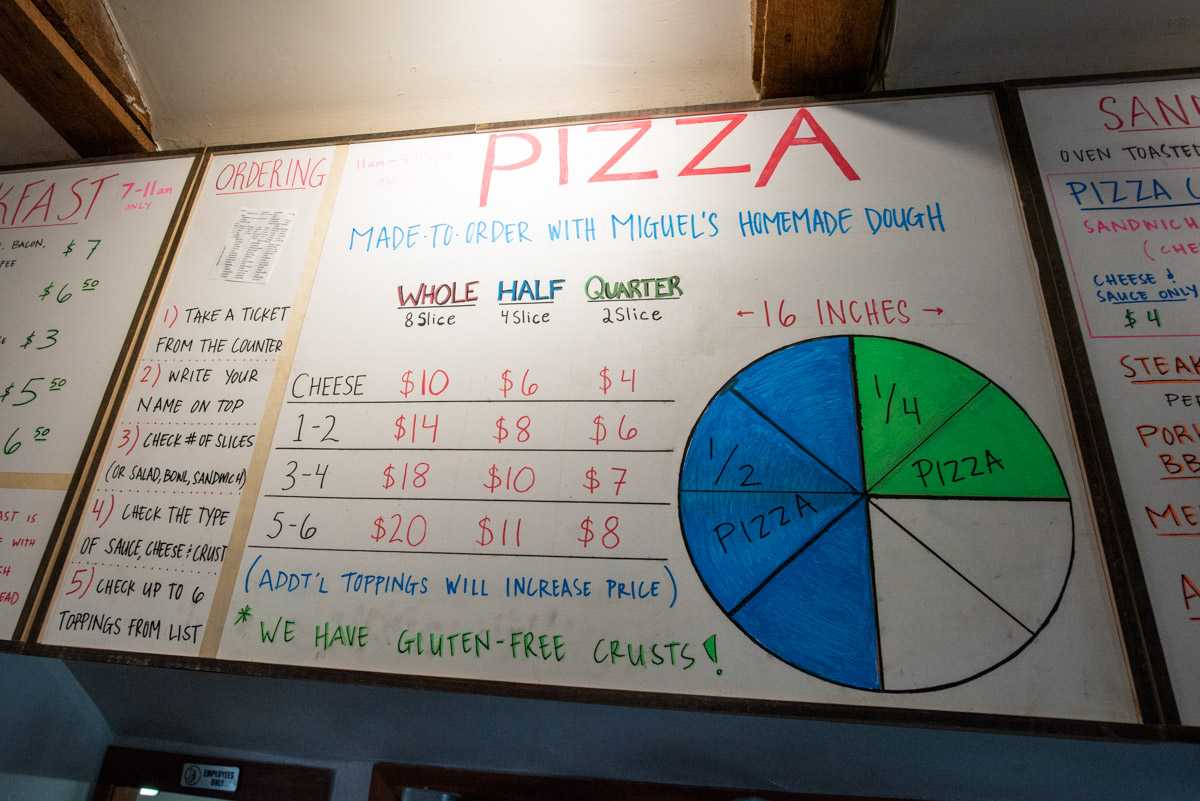 KFAST 7-11am
ONLY
BACON, $7
FEE
$6 50
$3
$5 50
6 50
AST IS
WITH
SH
EAD
ORDERING
1) TAKE A TICKET
FROM THE COUNTER
2) WRITE YOUR
NAME ON TOP
3) CHECK # OF SLICES
(OR SALAD, BOWL, SANDWICH)
4) CHECK THE TYPE
OF SAUCE, CHEESE & CRUST
5) CHECK UP TO 6
TOPPINGS FROM LIST
11am -
ONLY
PIZZA
MADE-TO-ORDER WITH MIGUEL'S HOMEMADE DOUGH
WHOLE HALF QUARTER
8 Slice 4 Slice 2 Slice
CHEESE $10 $6 $4
1-2 $14 $8 $6
3-4 $18 $10 $7
5-6 $20 $11 $8
(ADDT'L TOPPINGS WILL INCREASE PRICE)
* WE HAVE GLUTEN-FREE CRUSTS!
← 16 INCHES →
1/4
PIZZA
1/2
PIZZA
SAN
OVEN TOASTED
PIZZA
SANDWICH
(CHE
CHEESE &
SAUCE ONLY
$4
STEAK
PE
POR
BB
ME
A
EMPLOYEES
ONLY